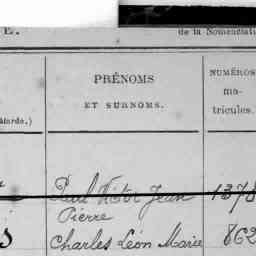 E.
de la Nomenclatu
PRÉNOMS
ET SURNOMS.
NUMÉROS
ma-
tricules.
âtarde.)
Paul Victor Jean 1378
Pierre
Charles Léon Marie 862